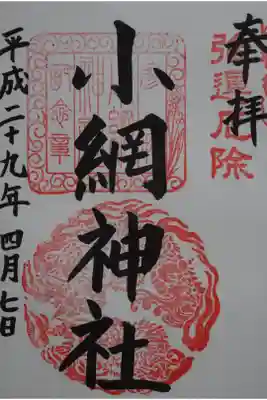 奉拝
強運厄除
小網神社
平成二十九年四月七日